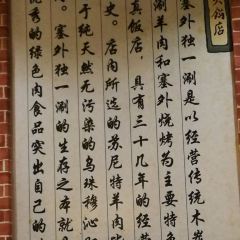 火锅店
塞外独一涮是以经营传统木炭
涮羊肉和塞外烧烤等主要特色
真饭店，具有三十几年的经营
史。店内所选的苏尼特羊肉
于纯天然无污染的乌珠穆沁
。塞外独一涮的生存之本就是
优秀的绿色肉食品突出自己的